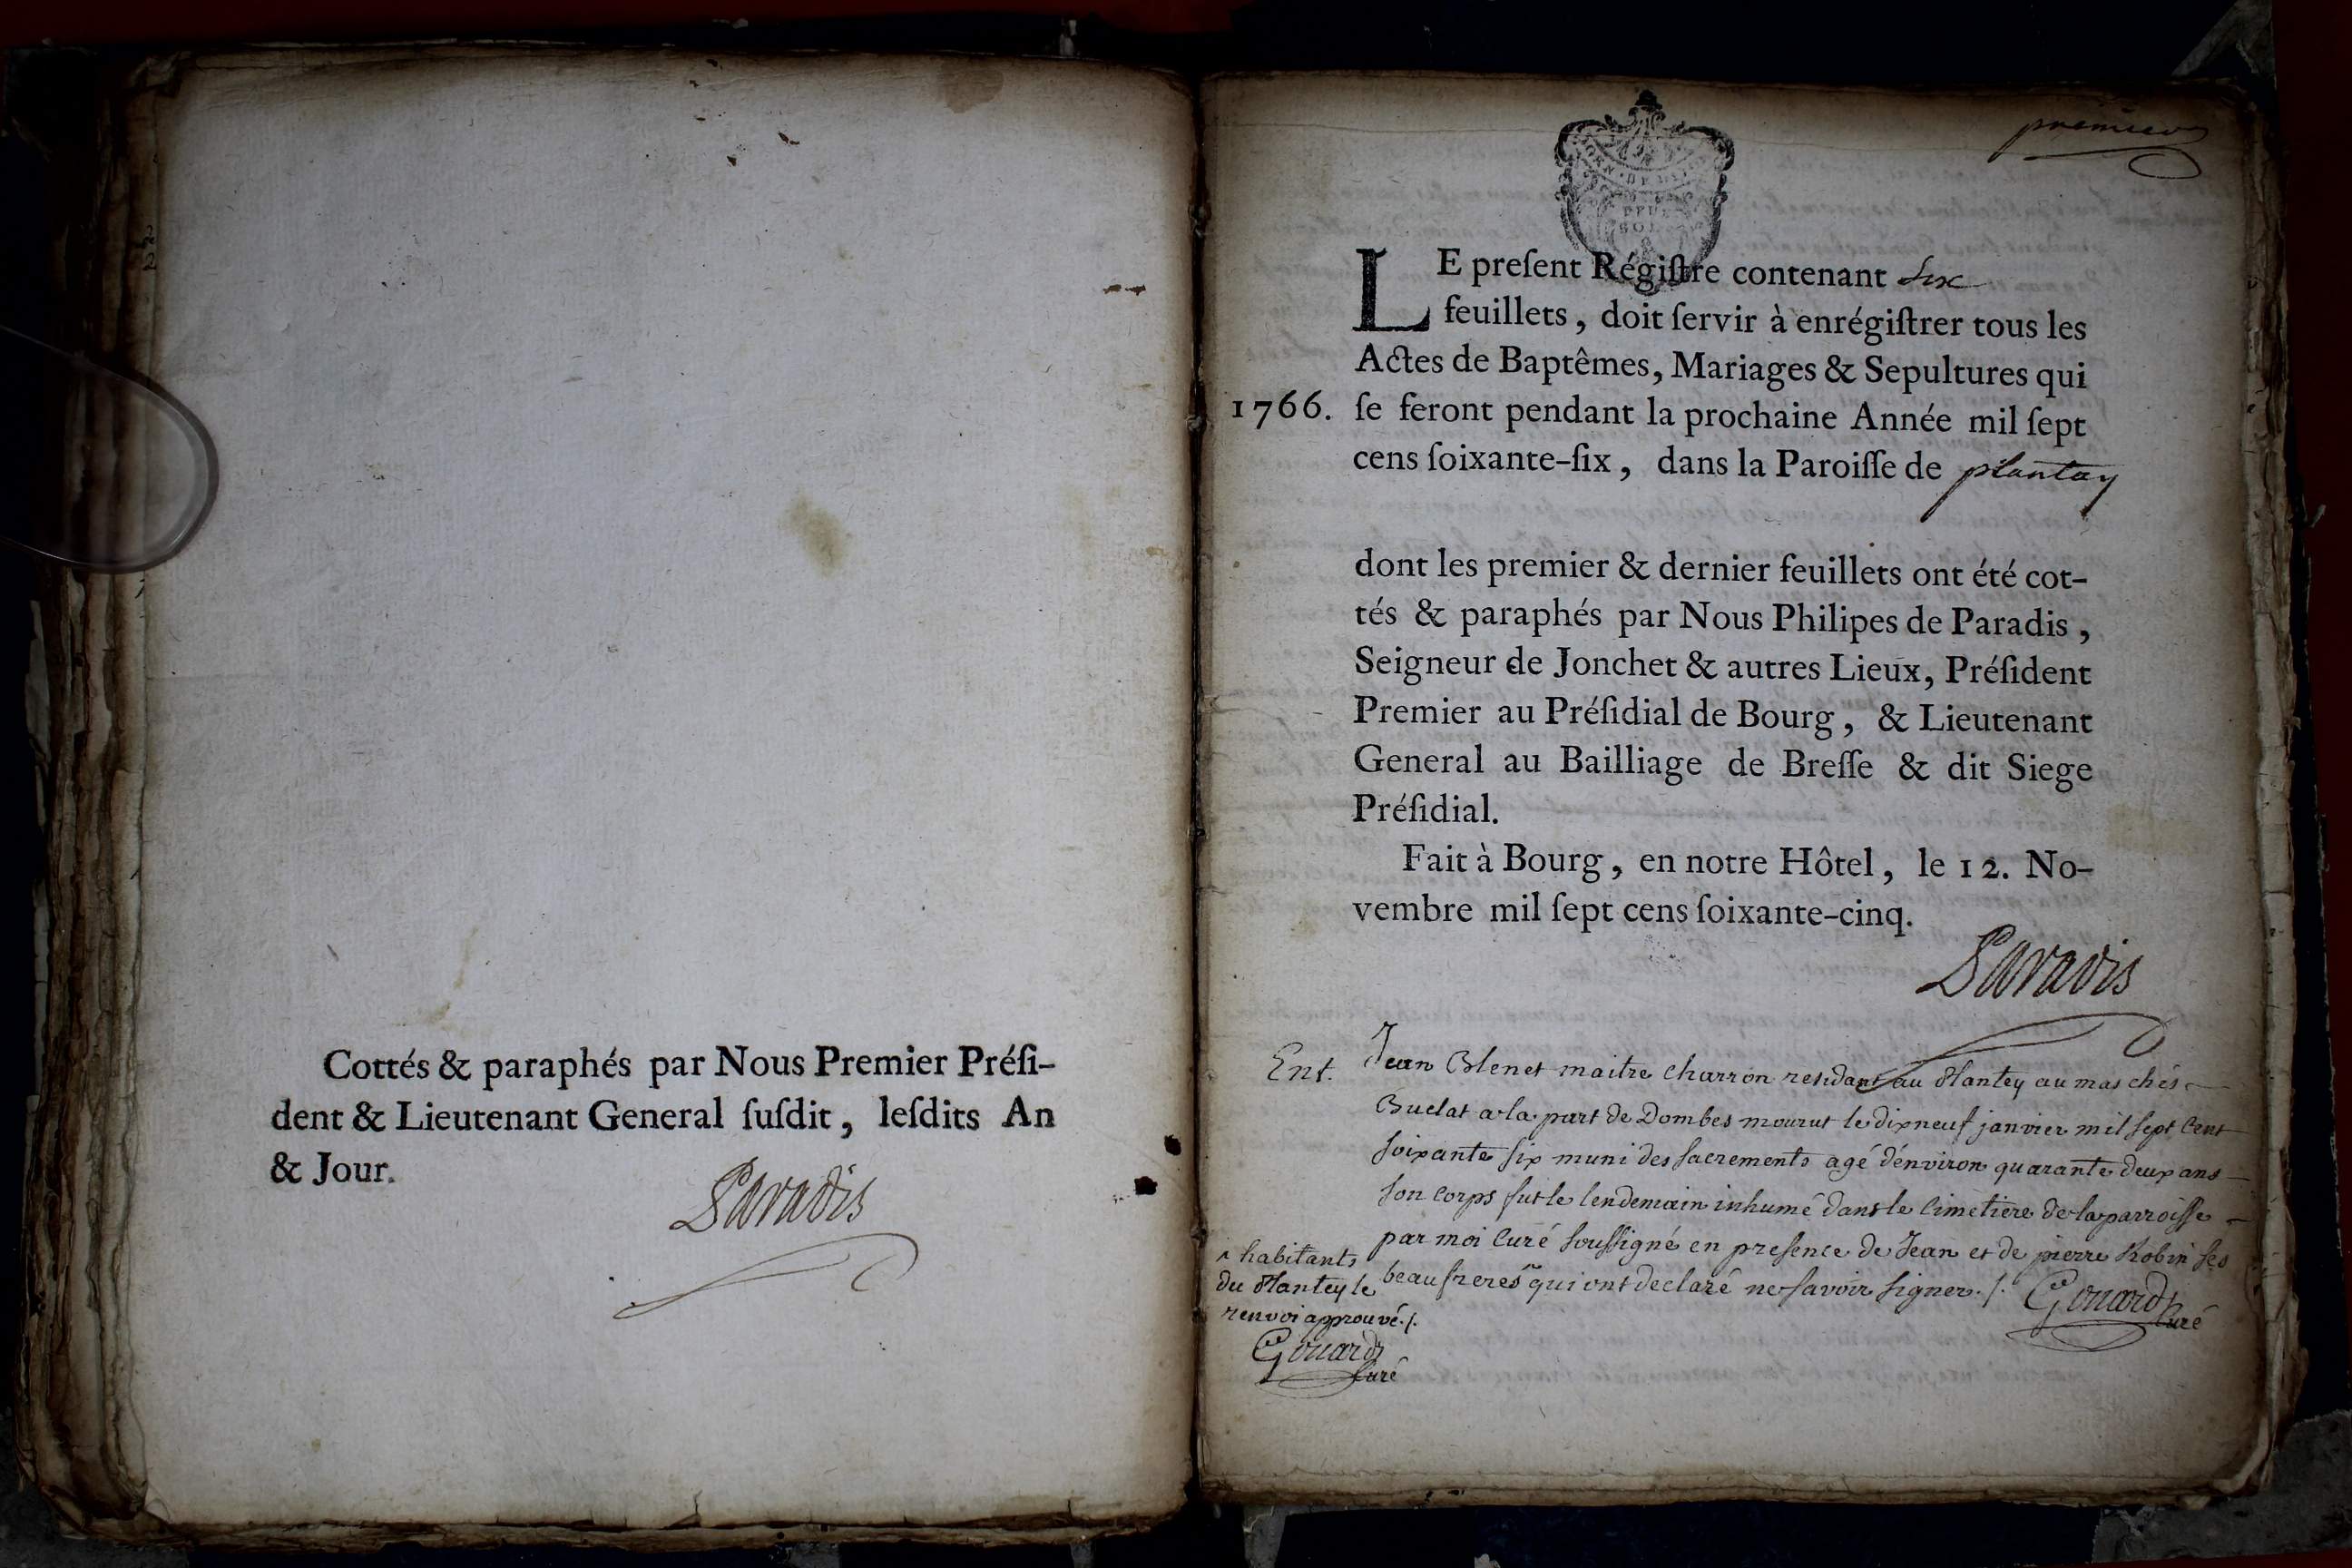 Cottés & paraphés par Nous Premier Préſi-
dent & Lieutenant General ſuſdit, leſdits An
& Jour.
Paradis
premier
LE preſent Régiſtre contenant Six
feuillets, doit ſervir à enrégiſtrer tous les
Actes de Baptêmes, Mariages & Sepultures qui
1766. ſe feront pendant la prochaine Année mil ſept
cens ſoixante-ſix, dans la Paroiſſe de plantay
dont les premier & dernier feuillets ont été cot-
tés & paraphés par Nous Philipes de Paradis,
Seigneur de Jonchet & autres Lieux, Préſident
Premier au Préſidial de Bourg, & Lieutenant
General au Bailliage de Breſſe & dit Siege
Préſidial.
Fait à Bourg, en notre Hôtel, le 12. No-
vembre mil ſept cens ſoixante-cinq.
Paradis
Ent. Jean Blenet maitre charron residant au Plantey au mas chés
Buclat a la part de Dombes mourut le dixneuf janvier mil ſept Cent
ſoixante ſix muni des ſacrements agé d'énviron quarante deux ans
ſon corps fut le lendemain inhumé dans le Cimetiere de la parroiſſe
par moi Curé ſouſſigné en preſence de Jean et de pierre Robin ſes
beaufreres ^ qui ont declaré ne ſavoir ſigner. /. Gouard Curé
^ habitants
du Plantey le
renvoi approuvé. /.
Gouard
Curé